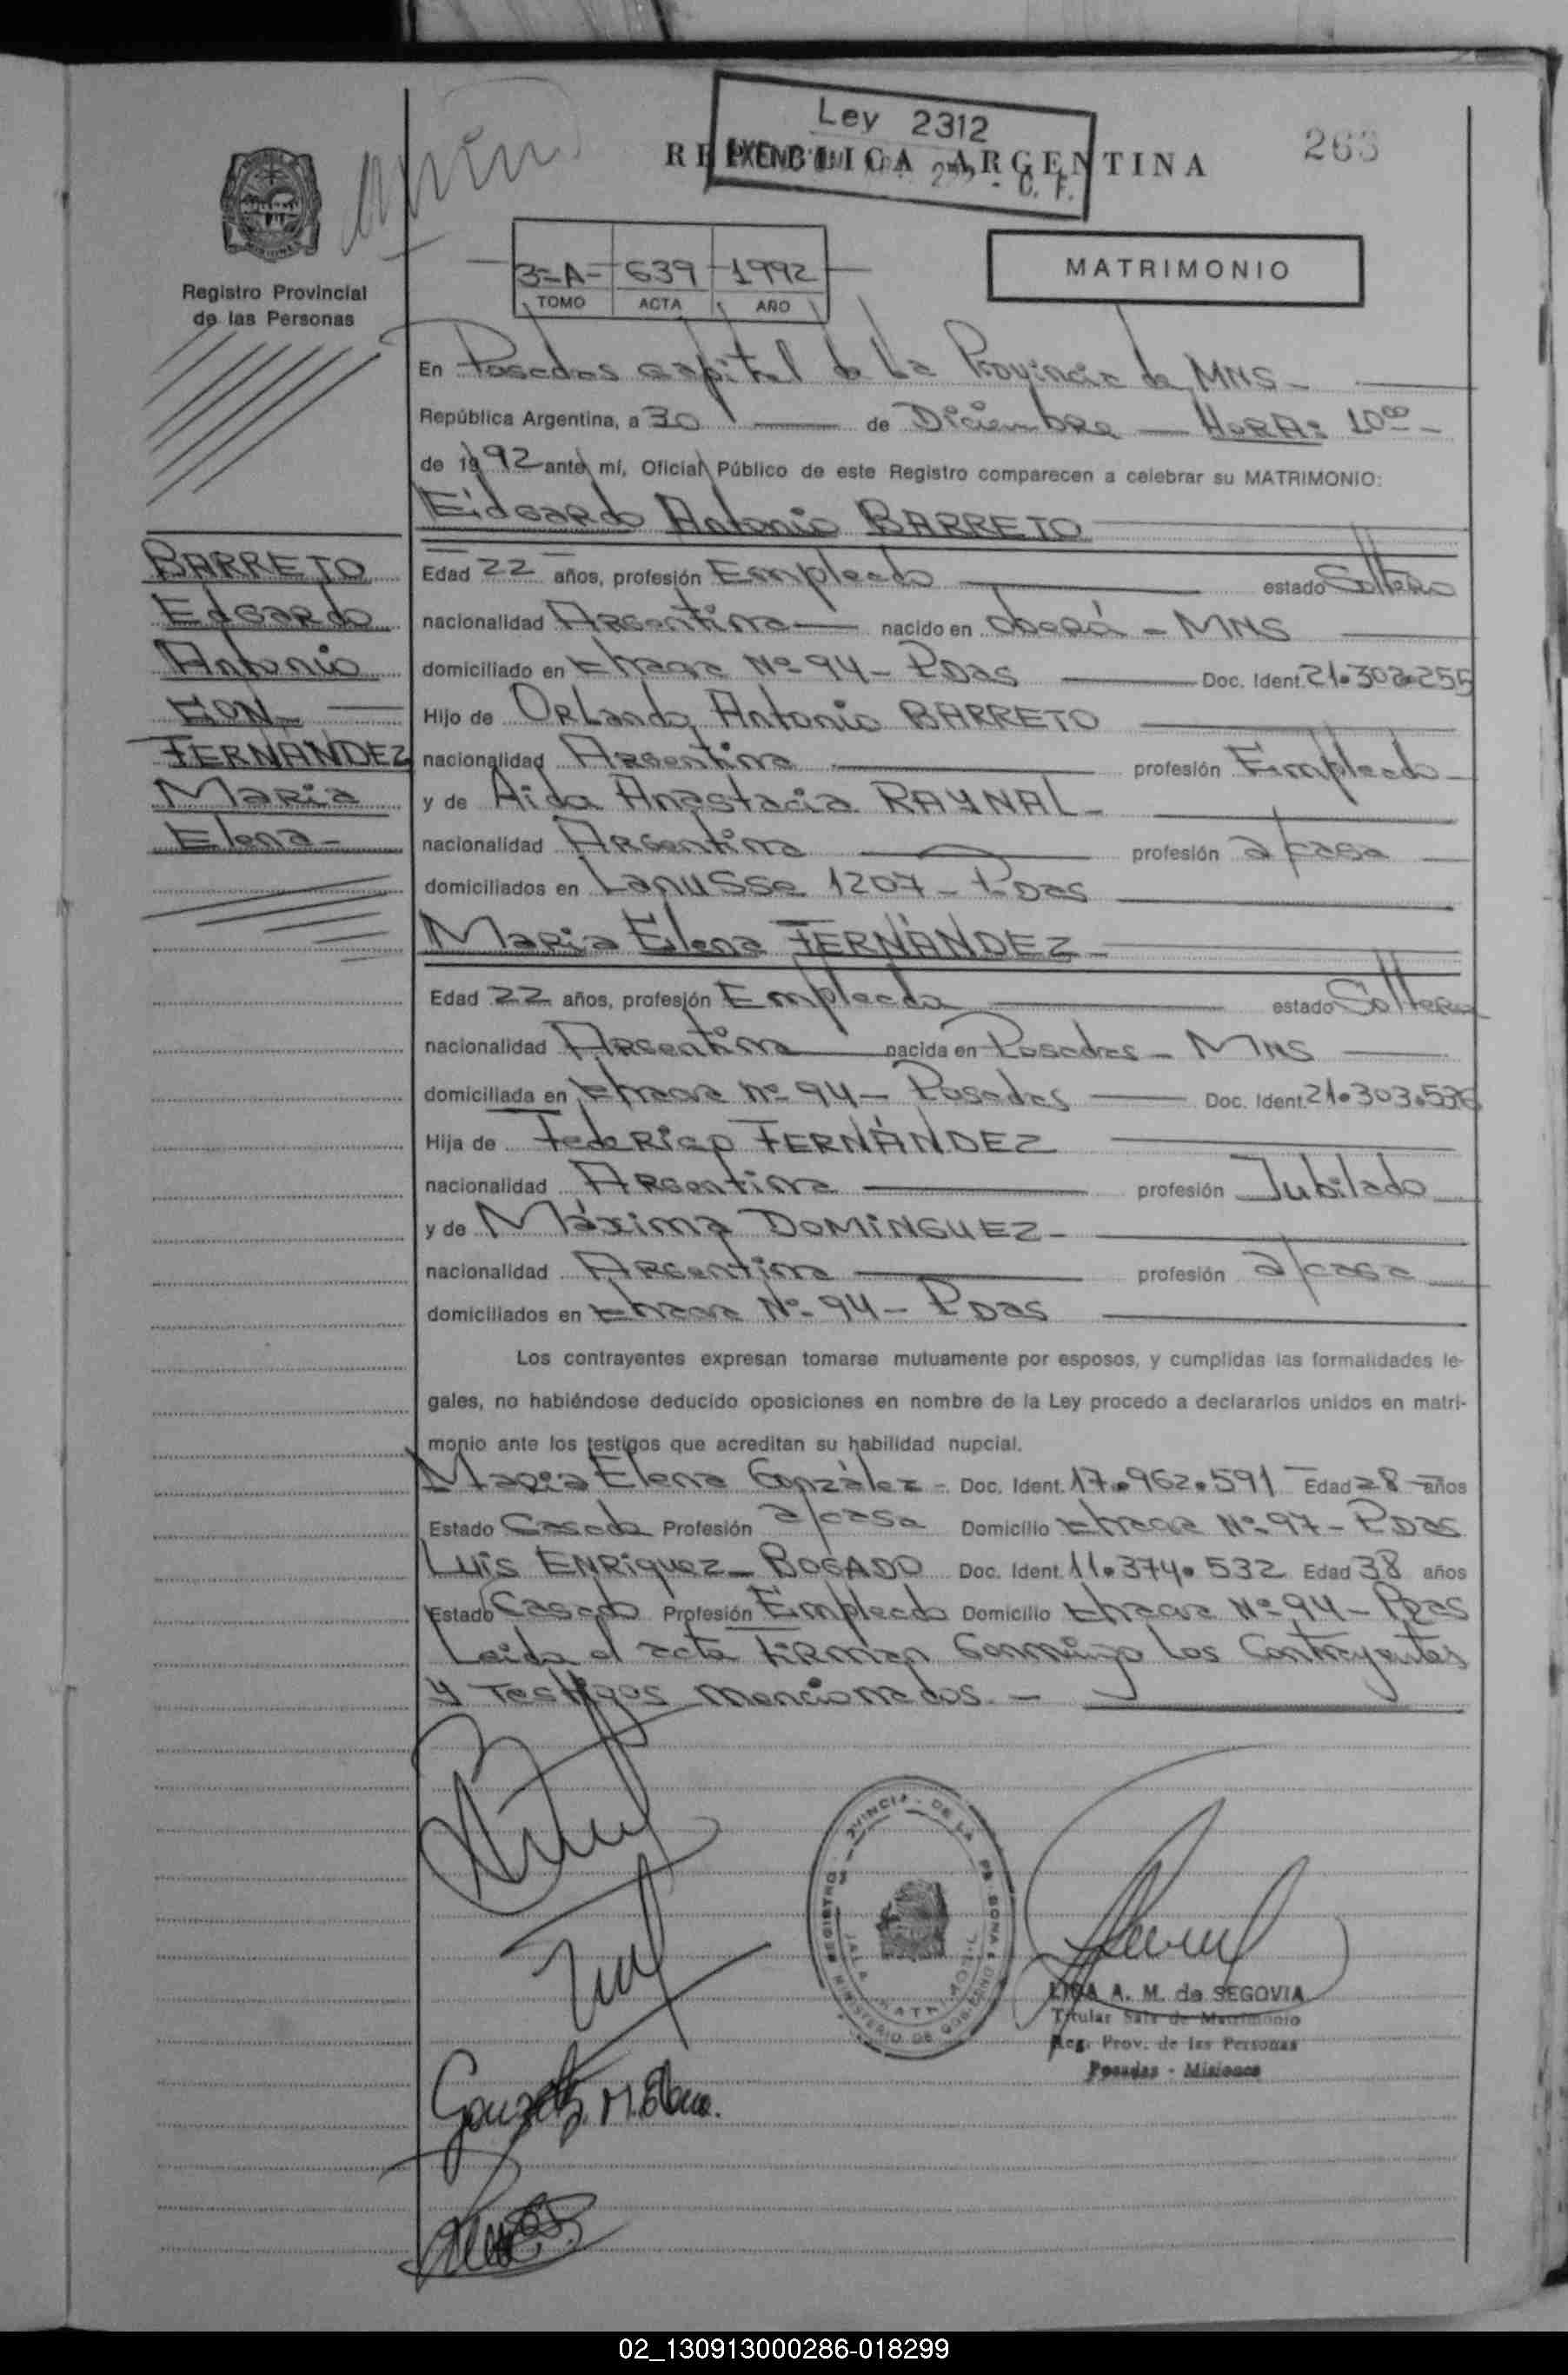 Ley 2312
REPUBLICA ARGENTINA
263
3-A- 639 1992
TOMO ACTA AÑO
MATRIMONIO
Registro Provincial
de las Personas
En Posadas capital de la Provincia de MNS-
República Argentina, a 30 de Diciembre HORA: 10⁰⁰-
de 1992 ante mí, Oficial Público de este Registro comparecen a celebrar su MATRIMONIO:
Edgardo Antonio BARRETO
BARRETO
Edgardo
Antonio
CON
FERNÁNDEZ
Maria
Elena-
Edad 22 años, profesión Empleado estado Soltero
nacionalidad Argentina nacido en Oberá - MNS
domiciliado en Nº 94 - PDas Doc. Ident. 21.302.255
Hijo de Orlando Antonio BARRETO
nacionalidad Argentina profesión Empleado
y de Aida Anastacia RAYNAL-
nacionalidad Argentina profesión a/casa
domiciliados en Lanusse 1207 - PDas
Maria Elena FERNÁNDEZ-
Edad 22 años, profesión Empleada estado Soltera
nacionalidad Argentina nacida en Posadas - MNS
domiciliada en Nº 94 - Posadas Doc. Ident. 21.303.536
Hija de Federico FERNÁNDEZ
nacionalidad Argentina profesión Jubilado
y de Máxima DOMINGUEZ-
nacionalidad Argentina profesión a/casa
domiciliados en Nº 94 - PDas
Los contrayentes expresan tomarse mutuamente por esposos, y cumplidas las formalidades le-
gales, no habiéndose deducido oposiciones en nombre de la Ley procedo a declararlos unidos en matri-
monio ante los testigos que acreditan su habilidad nupcial.
Maria Elena González - Doc. Ident. 17.962.591 Edad 28 años
Estado Casada Profesión a/casa Domicilio Nº 97 - PDas
Luis ENRiquez- BOGADO Doc. Ident. 11.374.532 Edad 38 años
Estado Casado Profesión Empleado Domicilio Nº 94 - PDas
Leida el acta firman conmigo los Contrayentes
y Testigos mencionados. -
A. M. de SEGOVIA
Titular Sala de Matrimonio
Reg. Prov. de las Personas
Posadas - Misiones
02_130913000286-018299